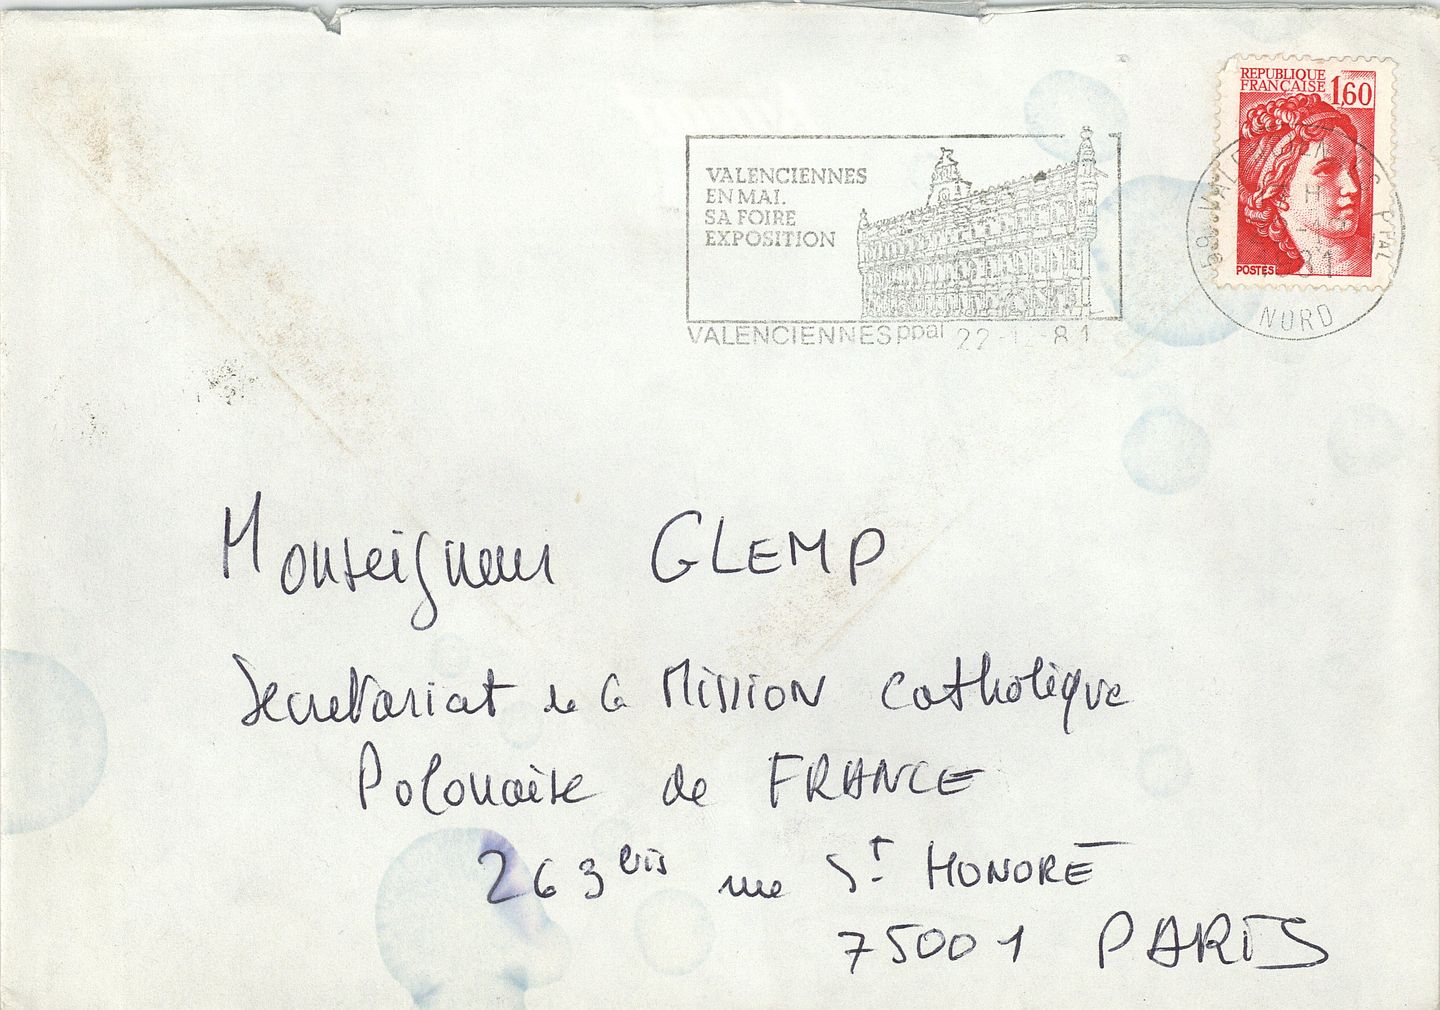 REPUBLIQUE
FRANÇAISE 1,60
POSTES
VALENCIENNES
EN MAI.
SA FOIRE
EXPOSITION
VALENCIENNES ppal 22-12-81
59 VALENCIENNES PPAL
NORD
Monseigneur GLEMP
Secretariat de la Mission Catholique
Polonaise de FRANCE
263 bis rue St HONORÉ
75001 PARIS